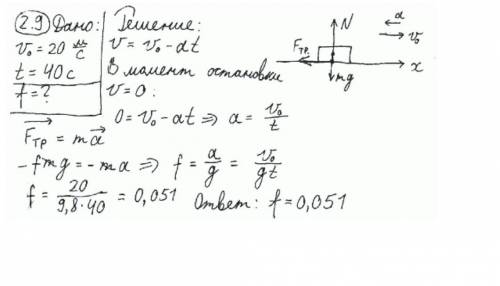 2.9 Дано:
v₀ = 20 м/с
t = 40 с
f = ?
Решение:
v = v₀ - at
В момент остановки
v = 0:
0 = v₀ - at ⇒ a = v₀/t
F⃗тр = ma⃗
-fmg = -ma ⇒ f = a/g = v₀/gt
f = 20/9,8·40 = 0,051
Ответ: f = 0,051
N
a
v₀
Fтр
x
mg